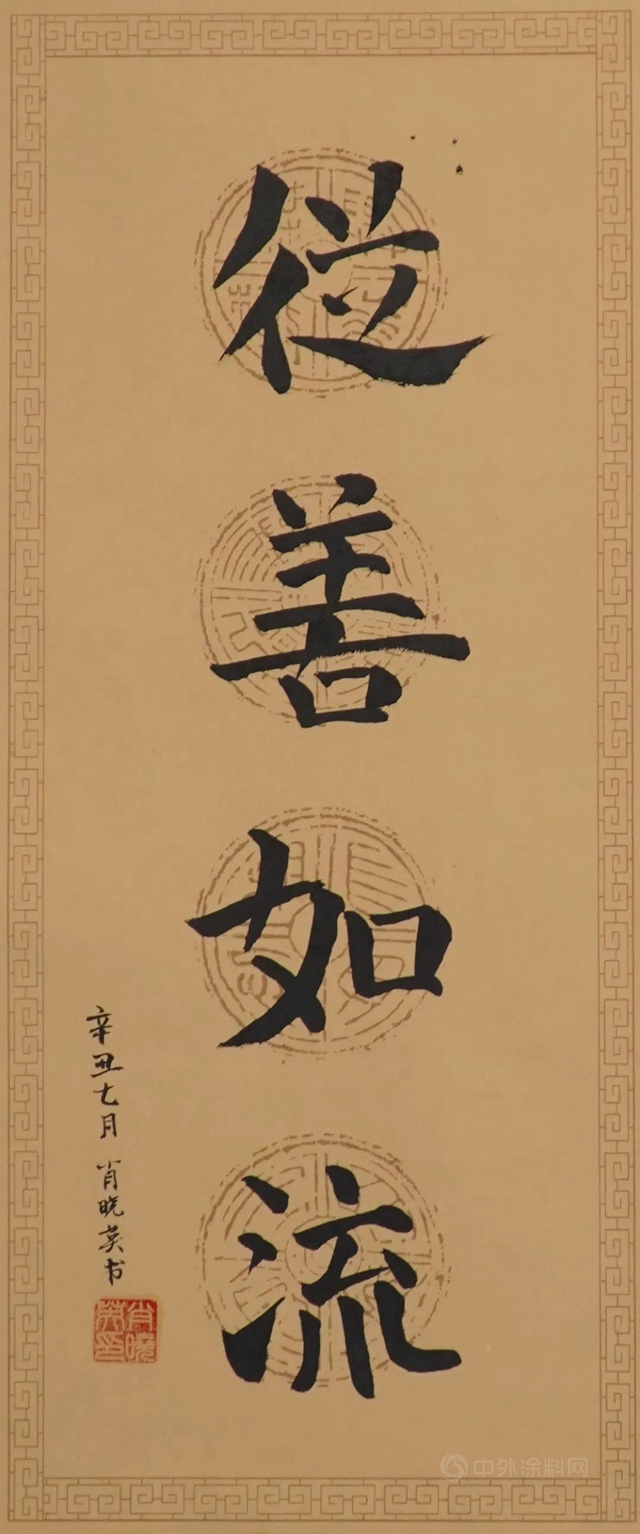 從善如流
辛丑七月 肖晓英书
肖曉英印
中外涂料网